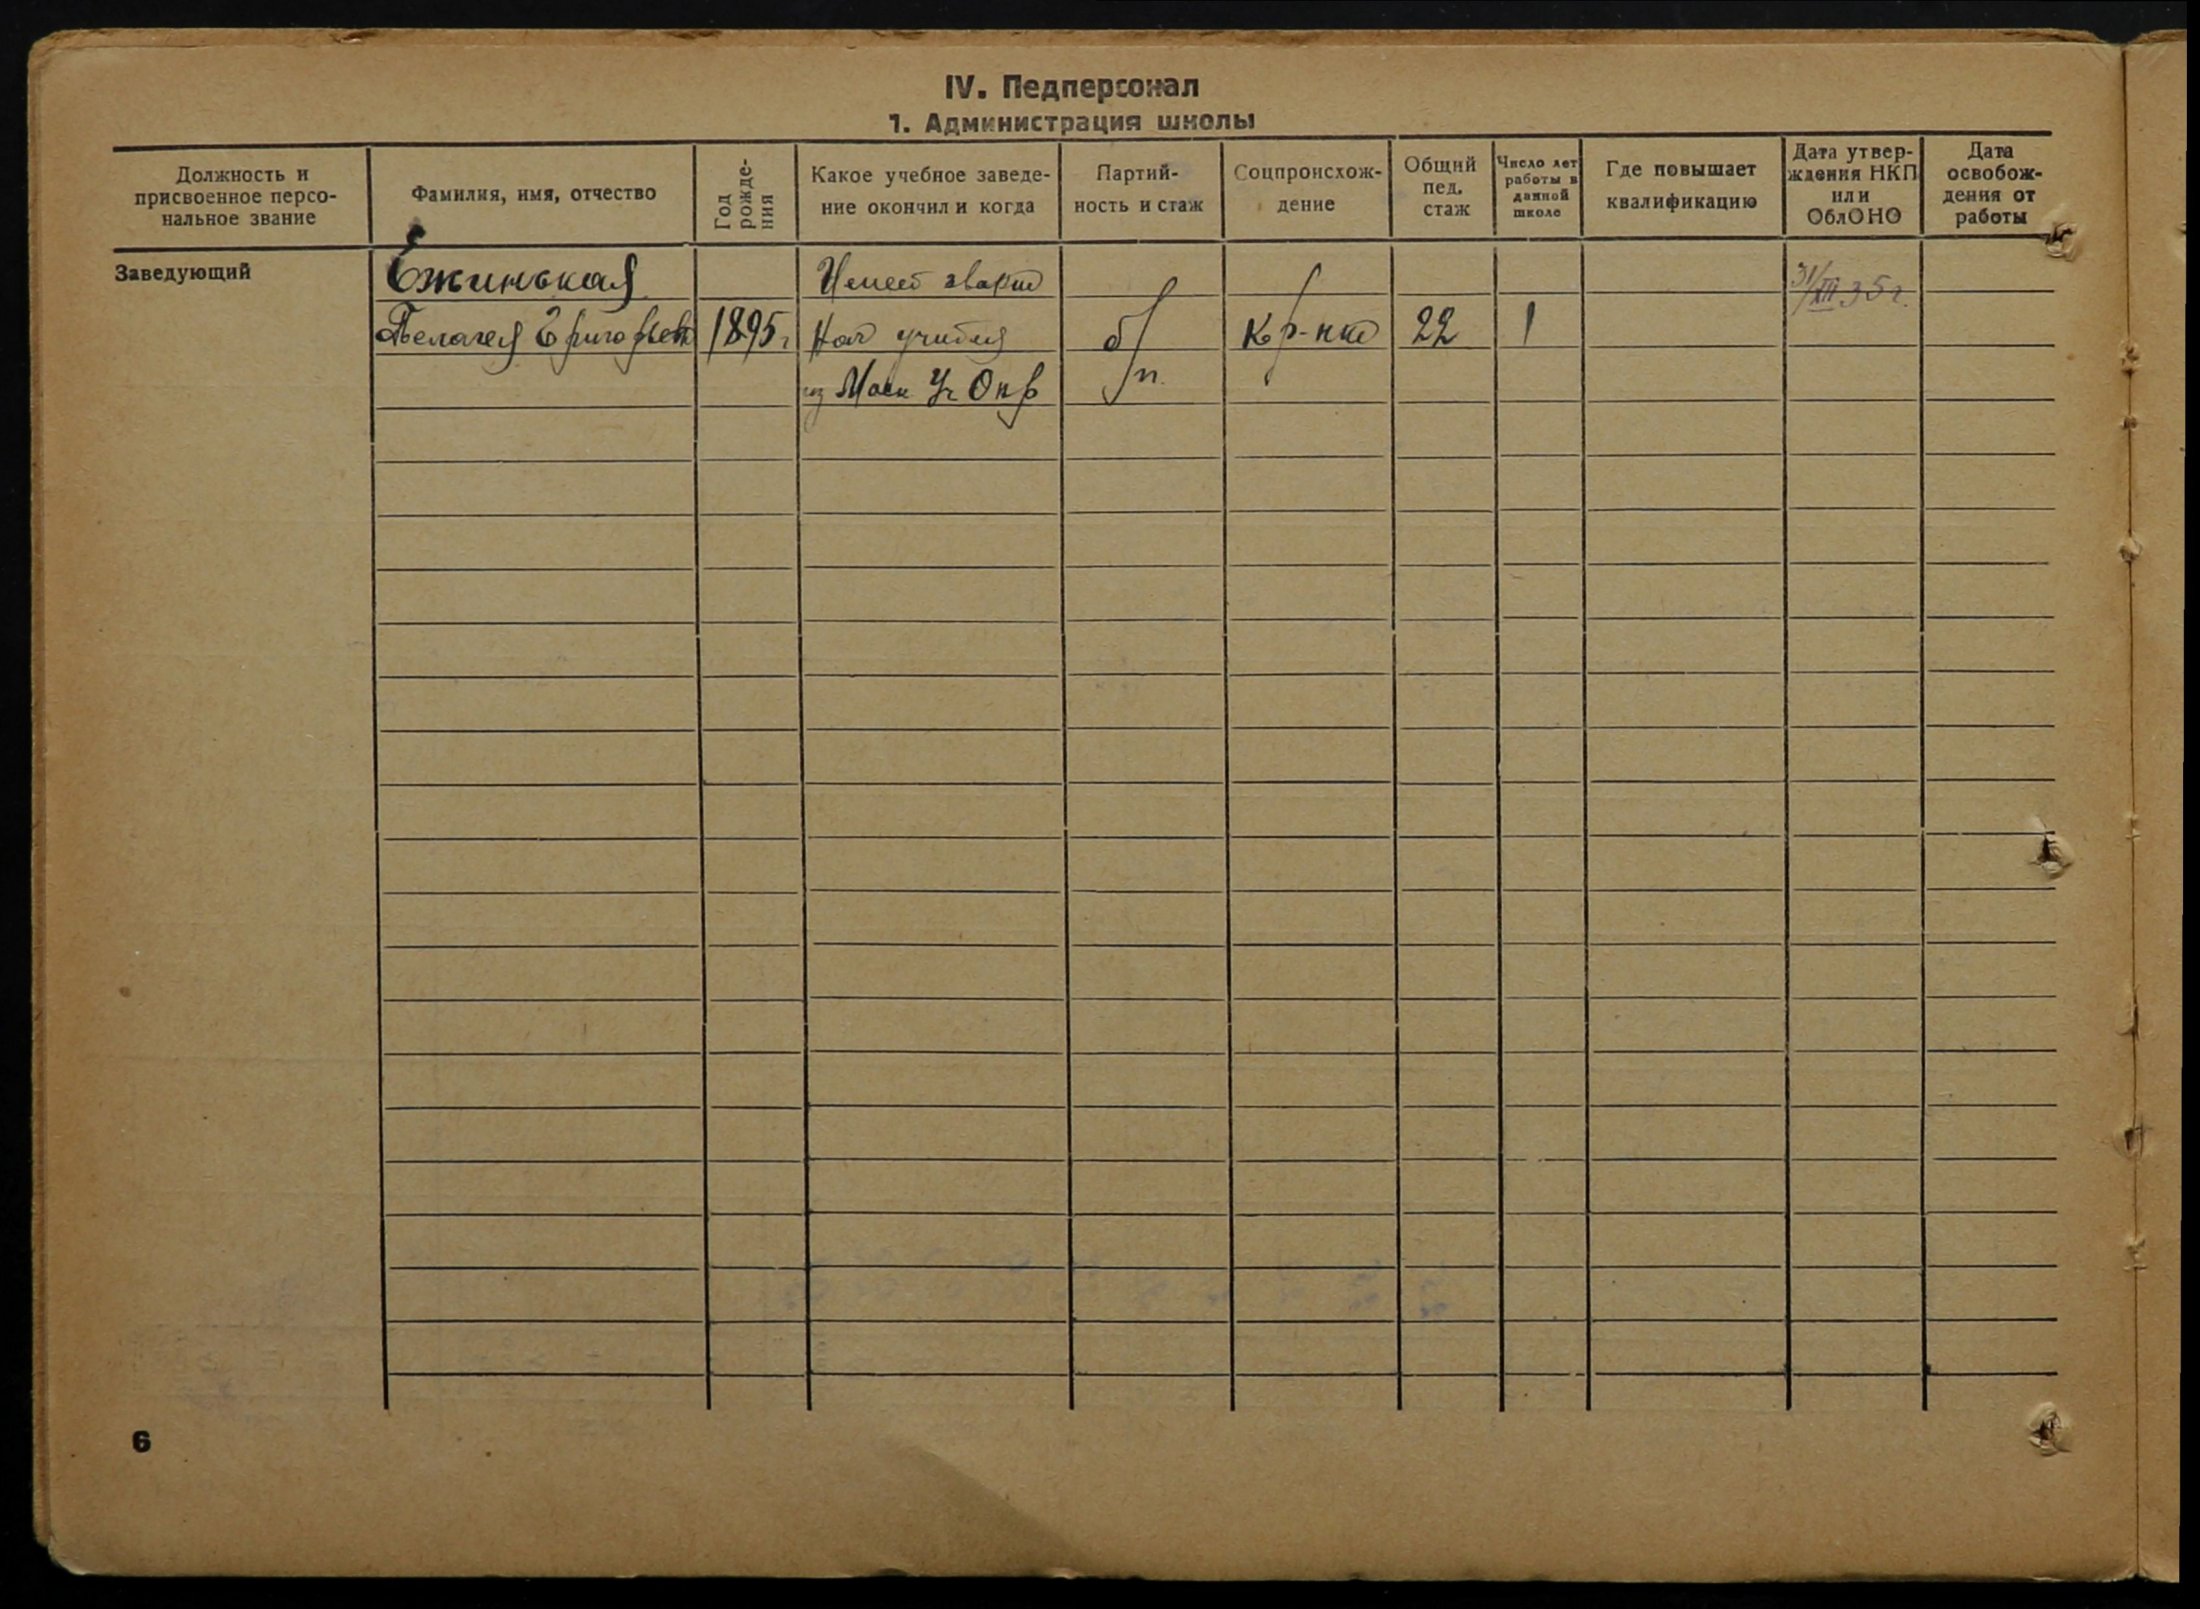 IV. Педперсонал
1. Администрация школы
Должность и присвоенное персональное звание
Фамилия, имя, отчество
Год рождения
Какое учебное заведение окончил и когда
Партийность и стаж
Соцпроисхождение
Общий пед. стаж
Число лет работы в данной школе
Где повышает квалификацию
Дата утверждения НКП или ОблОНО
Дата освобождения от работы
Заведующий
Имеет
31/XII 35 г.
Пелагея Григорьевн
1895 г
Нач учителя
б/п.
22
1
из Моск Уч Окр
6